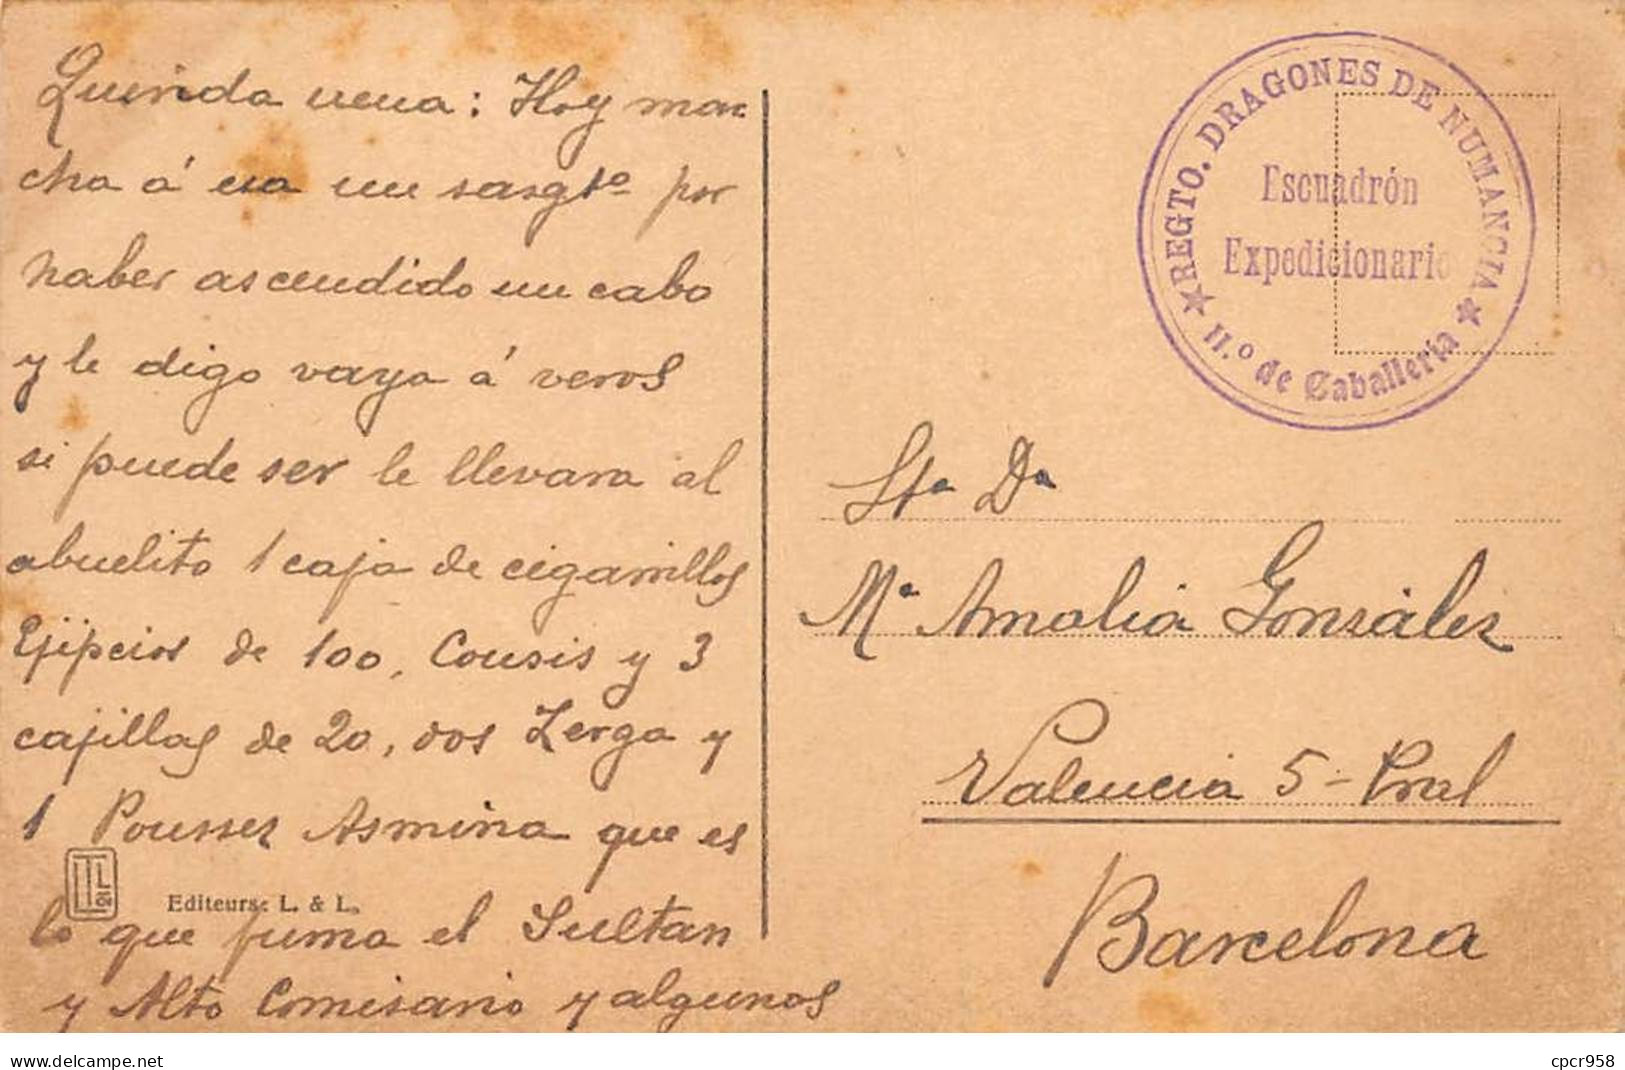 Querida nena: Hoy mar
cha á esa un sasgto por
haber ascendido un cabo
y le digo vaya á veros
si puede ser le llevara al
abuelito 1 caja de cigarrillos
Ejipcios de 100, Cousis y 3
cajillas de 20, dos Zerga y
1 Pousser Asmina que es
lo que fuma el Sultan
y Alto Comisario y algunos
Editeurs: L. & L.
REGTO. DRAGONES DE NUMANCIA
Escuadrón
Expedicionario
11.º de Caballería
Sta Da
Ma Amalia Gonzàlez
Valencia 5-Pral
Barcelona
www.delcampe.net
cpcr958